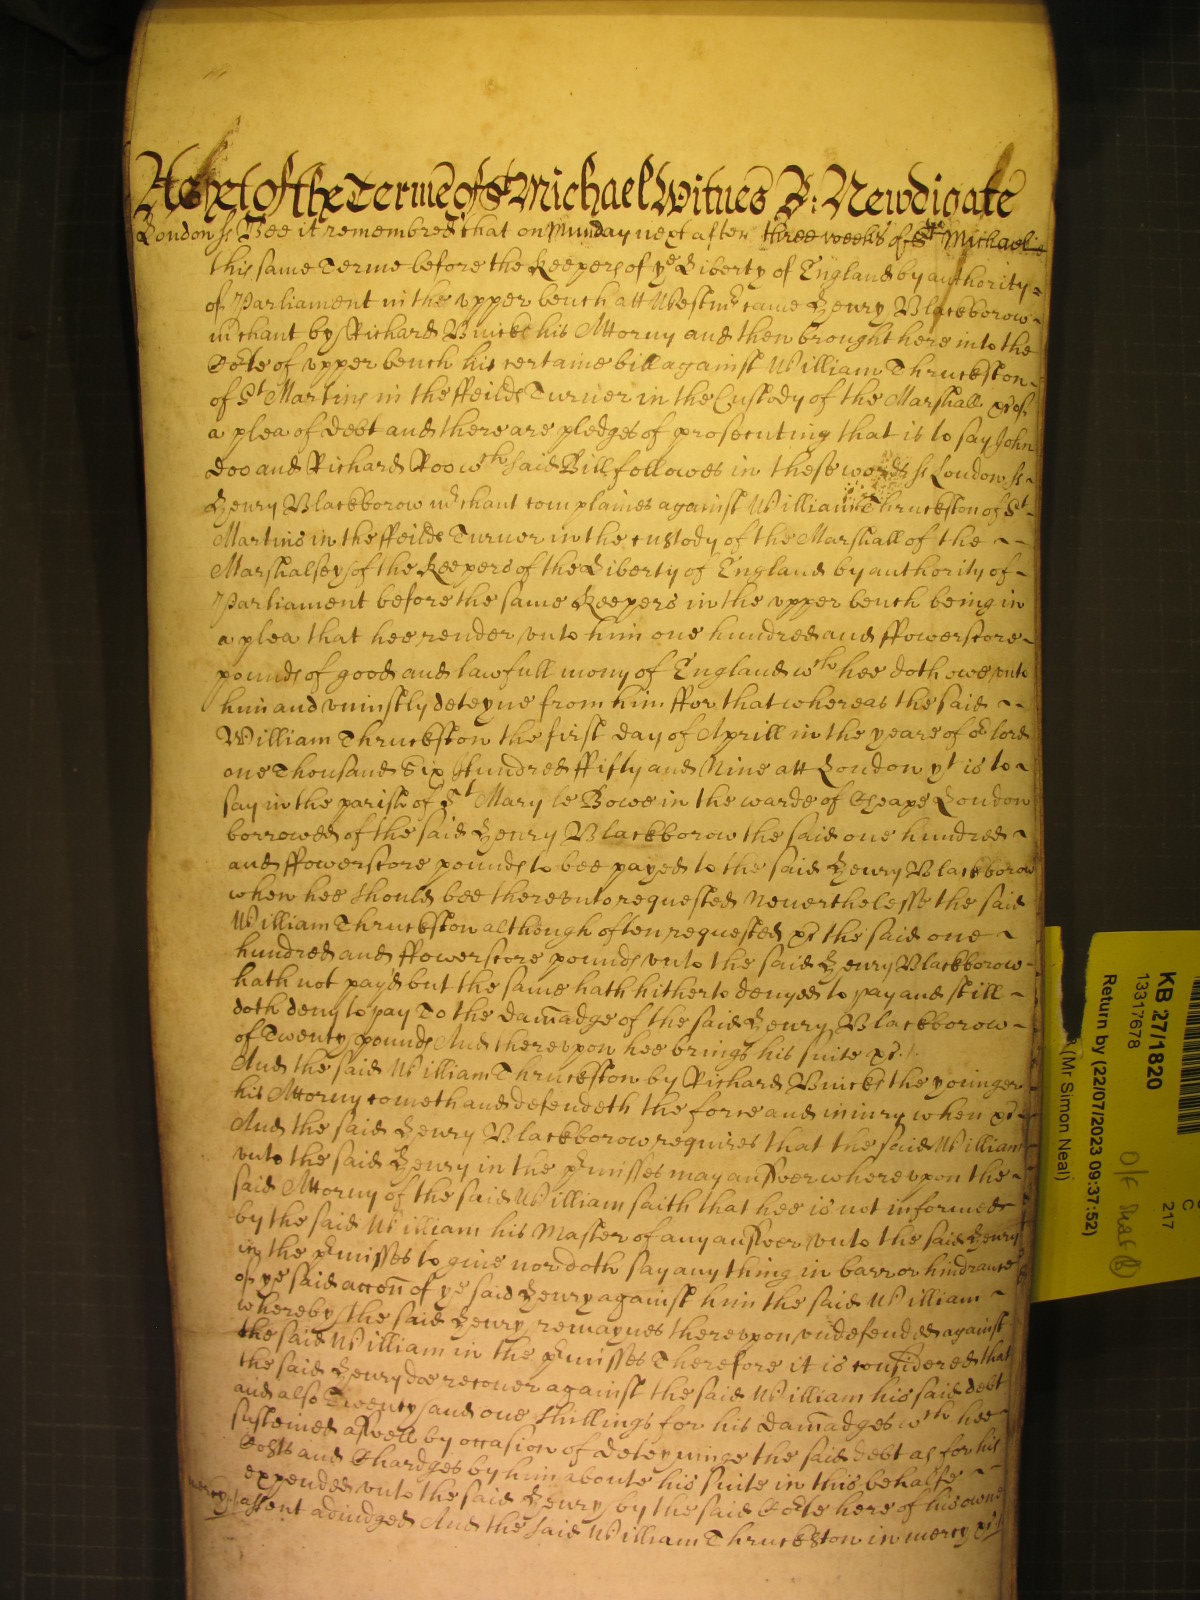 As yet of the Terme of St Michael Witnes R: Newdigate
London ss Bee it remembred that on Munday next after three weeks of St Michaell
this same Terme before the Keepers of ye Liberty of England by authority
of Parliament in the upper bench att Westmr came Henry Blackborow
mchant by Richard Buicke his Attorny and then brought here into the
Corte of upper bench his certaine bill against William Thruckston
of St Martins in the ffeilds Turner in the Custody of the Marshall &c of
a plea of debt and there are pledges of prosecuting that is to say John
Doo and Richard Roo wch said Bill followes in these words ss London ss
Henry Blackborow mchant complaines against William Thruckston of St
Martins in the ffeilds Turner in the custody of the Marshall of the
Marshalsey of the Keepers of the Liberty of England by authority of
Parliament before the same Keepers in the upper bench being in
a plea that hee render unto him one hundred and ffowerscore
pounds of good and lawfull mony of England wch hee doth owe unto
him and uniustly deteyne from him ffor that whereas the said
William Thruckston the first day of Aprill in the yeare of or lord
one Thousand Six Hundred ffifty and Nine att London yt is to
say in the parish of St Mary le Bowe in the warde of Cheape London
borrowed of the said Henry Blackborow the said one hundred
and ffowerscore pounds to bee payed to the said Henry Blackborow
when hee should bee thereunto requested Neverthelesse the said
William Thruckston although often requested &c the said one
hundred and ffowerscore pounds unto the said Henry Blackborow
hath not payd but the same hath hitherto denyed to pay and still
doth deny to pay To the damadge of the said Henry Blackborow
of Twenty pounds And thereupon hee brings his suite &c
And the said William Thruckston by Richard Buicke the younger
his Attorny cometh and defendeth the force and iniury when &c
And the said Henry Blackborow requires that the said William
unto the said Henry in the pmisses may answer whereupon the
said Attorny of the said William saith that hee is not informed
by the said William his Master of any answer unto the said Henry
in the pmisses to give nor doth say any thing in barr or hindrance
of ye said accon of ye said Henry against him the said William
whereby the said Henry remaynes thereupon undefended against
the said William in the pmisses Therefore it is considered that
the said Henry doe recover against the said William his said debt
and also Twenty and one shillings for his damadges wch hee
susteined aswell by occasion of deteyninge the said debt as for his
Costs and Chardges by him aboute his suite in this behalfe
expended unto the said Henry by the said Corte here of his owne
mercy
assent adiudged And the said William Thruckston in mercy &c
KB 27/1820
13317678
Return by (22/07/2023 09:37:52)
(Mr Simon Neal)
C
217